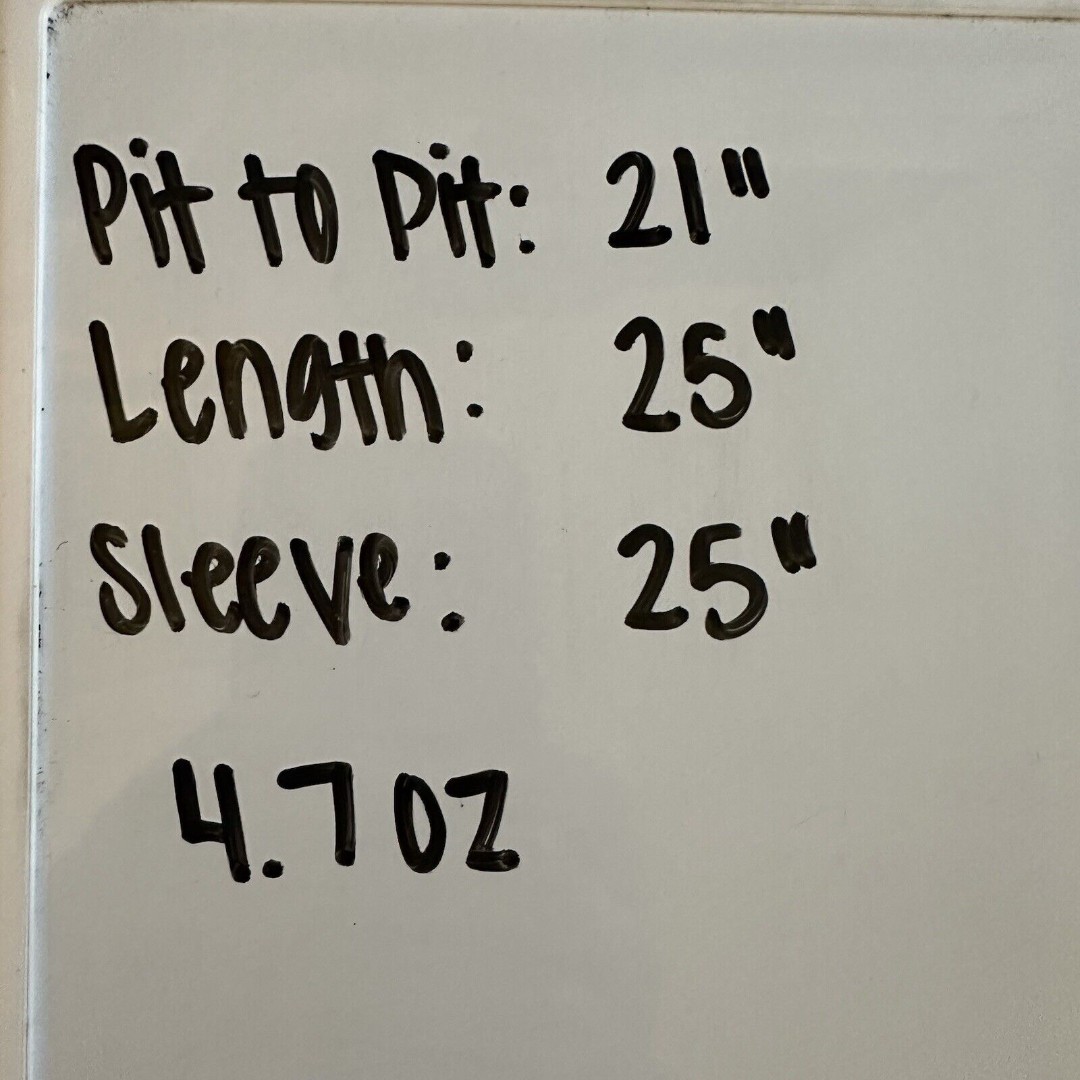 Pit to Pit: 21"
Length: 25"
Sleeve: 25"
4.7 oz